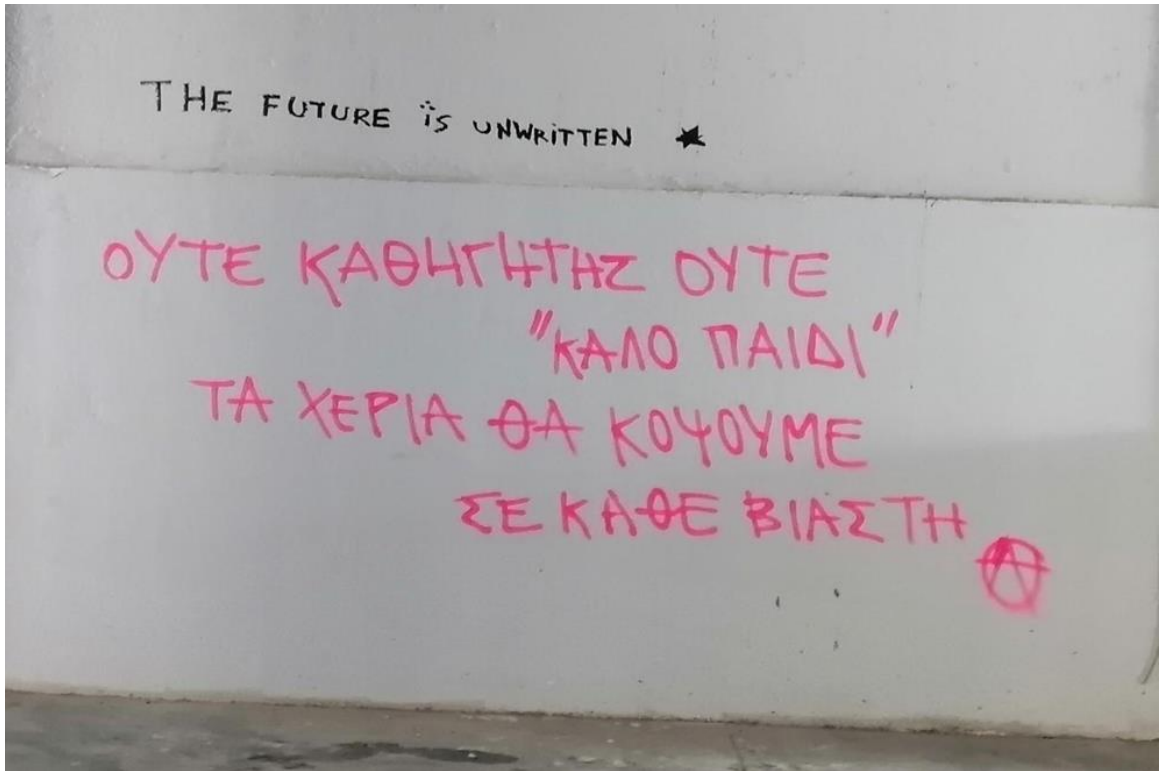 THE FUTURE is UNWRiTTEN ★
ΟΥΤΕ ΚΑΘΗΓΗΤΗΣ ΟΥΤΕ
"ΚΑΛΟ ΠΑΙΔΙ"
ΤΑ ΧΕΡΙΑ ΘΑ ΚΟΨΟΥΜΕ
ΣΕ ΚΑΘΕ ΒΙΑΣΤΗ Ⓐ